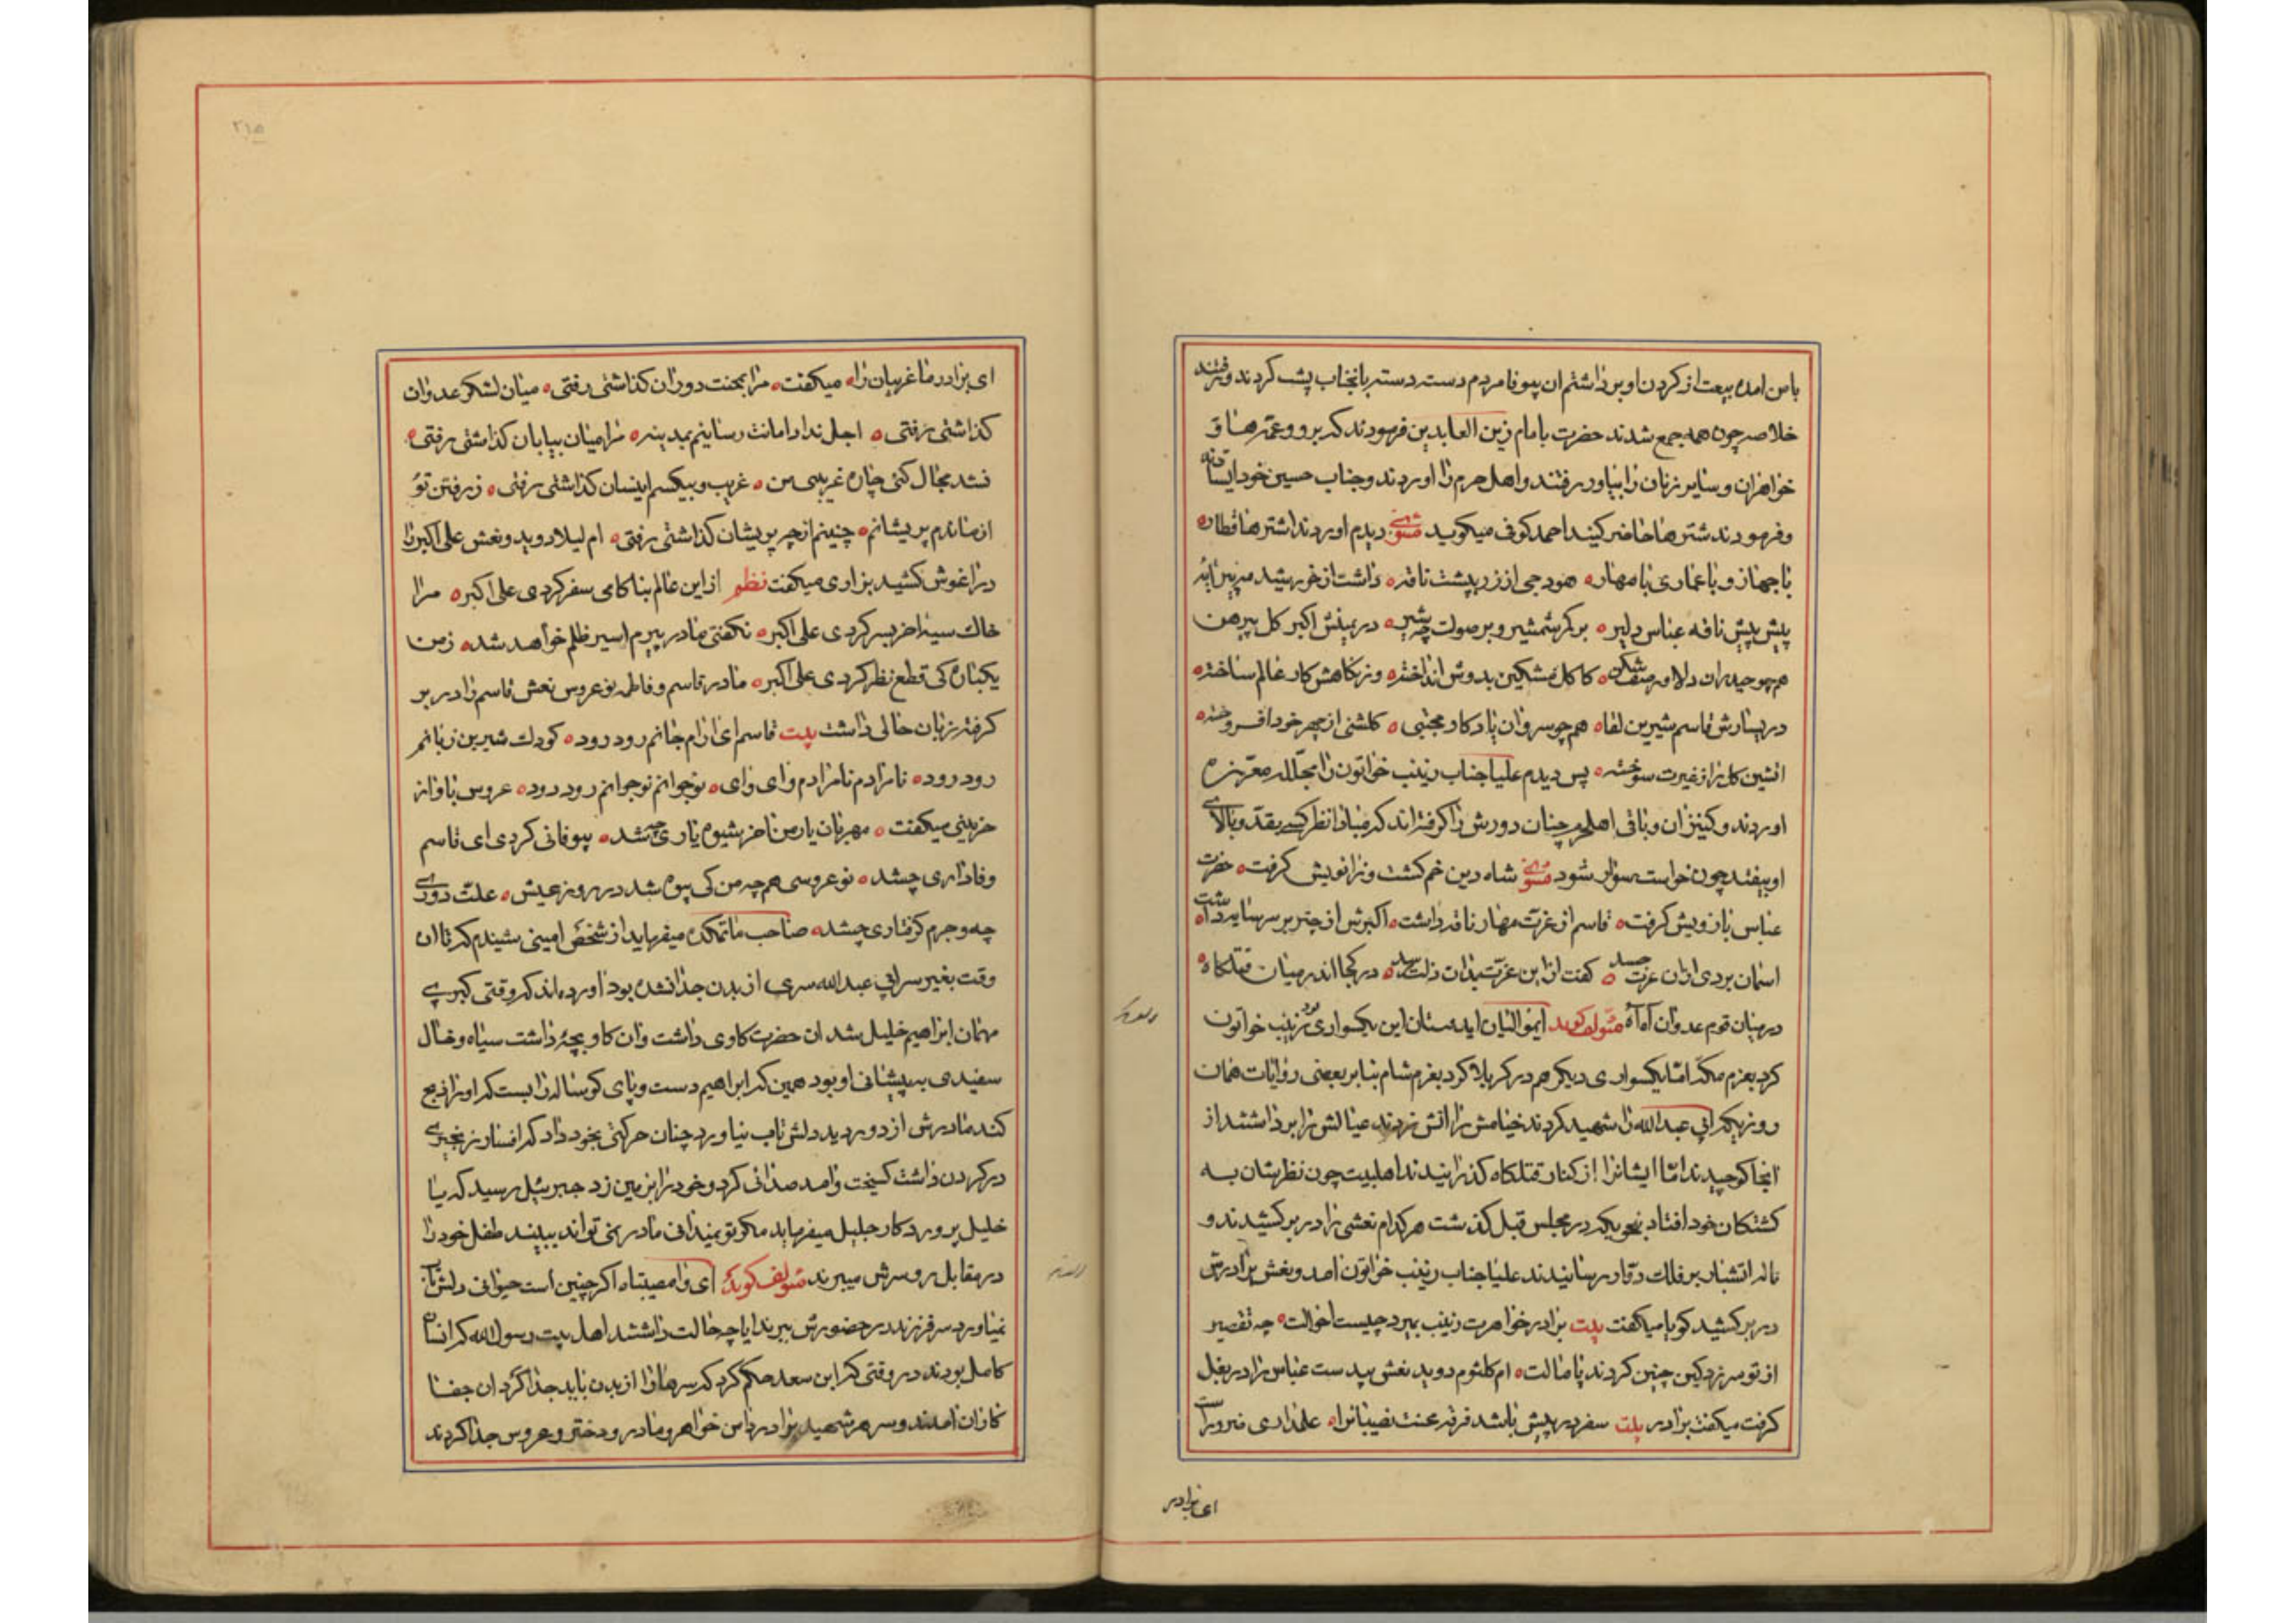 با من امده بیعت از کردن او برداشتم ان بیوفا مردم دسته دسته بانجناب پشت کردند و رفتند
خلاصه چون همه جمع شدند حضرت بامام زین العابدین فرمودند که برو و عمه ها و
خواهران و سایر زنان را بیاور رفتند و اهل حرم را اوردند و جناب حسین خود ایستاده
و فرمودند شترها حاضر کنید احمد کوفی میکوید مثنوی دیدم اوردند اشترها قطار
با جهاز و با عماری با مهار هودجی از زر بپشت ناقه داشت از خورشید
پیش پیش ناقه عباس دلیر بر کمر شمشیر و بر صولت چه شیر در یمینش اکبر کل پیرهن
همچو حیدر ان دلاور صف شکن کاکل مشکین بدوش انداخته وز نکاهش کار عالم ساخته
در یسارش قاسم شیرین لقا همچو سرو ان یادکار مجتبی کلشنی از چهر خود افروخته
اتشین کل را ز غیرت سوخته پس دیدم علیا جناب زینب خواتون را مجلله معززه
اوردند و کنیزان و باقی اهلحرم چنان دورش را کرفته اند که مبادا نظر کسی بقد و بالای
او بیفتد چون خواست سوار شود مثنوی شاه دین خم کشت و زانویش کرفت حضرت
عباس بازویش کرفت قاسم از عزت مهار ناقه داشت اکبرش از چتر بر سر سایه داشت
اسمان بردی ازان عزت حسد کفت از این عزت بدان ذلت رسد در کجا اندر میان قتلکاه
در میان قوم عدوان اه اه مؤلف کوید ایموالیان ایدوستان این یکسواری بود زینب خواتون
کرد بعزم مکه اما یکسواری دیکر هم در کربلا کرد بعزم شام بنا بر بعضی روایات همان
روزیکه ابی عبدالله را شهید کردند خیامش را اتش زدند عیالش را برداشتند از
انجا کوچیدند اما ایشانرا از کنار قتلکاه کذرانیدند اهلبیت چون نظرشان به
کشتکان خود افتاد بنحویکه در مجلس قبل کذشت هر کدام نعشی را در بر کشیدند و
ناله اتشبار بر فلک دوار رسانیدند علیا جناب زینب خواتون امد و نعش برادرش
در بر کشید کویا میکفت بیت برادر خواهرت زینب بمیرد چیست احوالت چه تقصیر
از تو سر زد کین چنین کردند پامالت ام کلثوم دوید نعش بیدست عباس را در بغل
کرفت میکفت برادر بیت سفر در پیش باشد فرقه محنت نصیبانرا علمداری ضرور است
ای برادر
ای برادر ما غریبان را میکفت مرا بمحنت دوران کذاشتی رفتی میان لشکر عدوان
کذاشتی رفتی اجل نداد امانت رسانیم بمدینه مرا میان بیابان کذاشتی رفتی
نشد مجال کنی چاره غریبی من غریب و بیکسم اینسان کذاشتی رفتی ز رفتن تو
از ماندم پریشانم چنینم از چه پریشان کذاشتی رفتی ام لیلا دوید و نعش علی اکبر را
در اغوش کشید بزاری میکفت نظم از این عالم بناکامی سفر کردی علی اکبر مرا
خاک سیه اخر بسر کردی علی اکبر نکفتی مادر پیرم اسیر ظلم خواهد شد ز من
یکباره کی قطع نظر کردی علی اکبر مادر قاسم و فاطمه نو عروس نعش قاسم را در بر
کرفته زبان حالی داشت بیت قاسم ای ارام جانم رود رود کودک شیرین زبانم
رود رود نامرادم نامرادم وای وای نوجوانم نوجوانم رود رود عروس با واز
حزینی میکفت مهربان یار من اخر شیوه یاری چه شد بیوفائی کردی ای قاسم
وفاداری چشد نو عروسی همچه من کی بیوه شد در روز عیش علت دوری
چه و جرم کرفتاری چشد صاحب ماتمکده میفرماید از شخص امینی شنیدم که تا ان
وقت بغیر سر ابی عبدالله سری از بدن جدا نشده بود اورده اند که وقتی کبری
مهمان ابراهیم خلیل شد ان حضرت کاوی داشت وان کاو بچهٔ داشت سیاه و خال
سفیدی به پیشانی او بود همین که ابراهیم دست و پای کوساله را بست که او را ذبح
کند مادرش از دور دید دلش تاب نیاورد چنان حرکتی بخود داد که افسار زنجیری
در کردن داشت کسیخت و امد صدائی کرد و خود را بزمین زد جبرئیل رسید که یا
خلیل پروردکار جلیل میفرماید مکر تو نمیدانی مادر نمی تواند ببیند طفل خود را
در مقابل روسرش میبرند مؤلف کوید ای وا مصیبتاه اکر چنین است حیوانی دلش تاب
نیاورد سر فرزند در حضورش ببرند ایا چه حالت داشتند اهل بیت رسول الله که انسان
کامل بودند در وقتی که ابن سعد حکم کرد که سرها را از بدن باید جدا کرد ان جفا
کاران امدند و سر هر شهید را در دامن خواهر و مادر و دختر و عروس جدا کردند